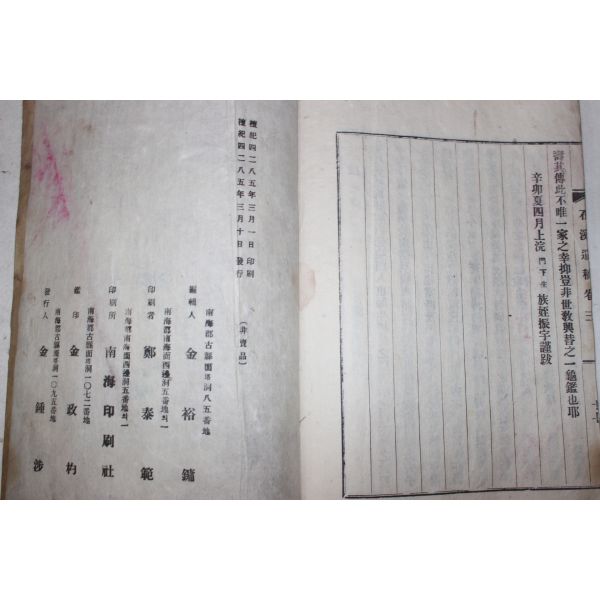 壽其傳此不唯一家之幸抑豈非世教興替之一龜鑑也耶
辛卯夏四月上浣 門下生 族姪振宇謹跋
遺稿 卷三
檀紀四二八五年三月一日 印刷
檀紀四二八五年三月十日 發行
(非賣品)
南海郡古縣面 洞八五番地
編輯人 金裕鏞
南海郡南海面西邊洞五番地의一
印刷者 鄭泰範
南海郡南海面西邊洞五番地의一
印刷所 南海印刷社
南海郡古縣面 洞一〇七二番地
鑑印 金政杓
南海郡古縣面 洞一〇九五番地
發行人 金鍾涉